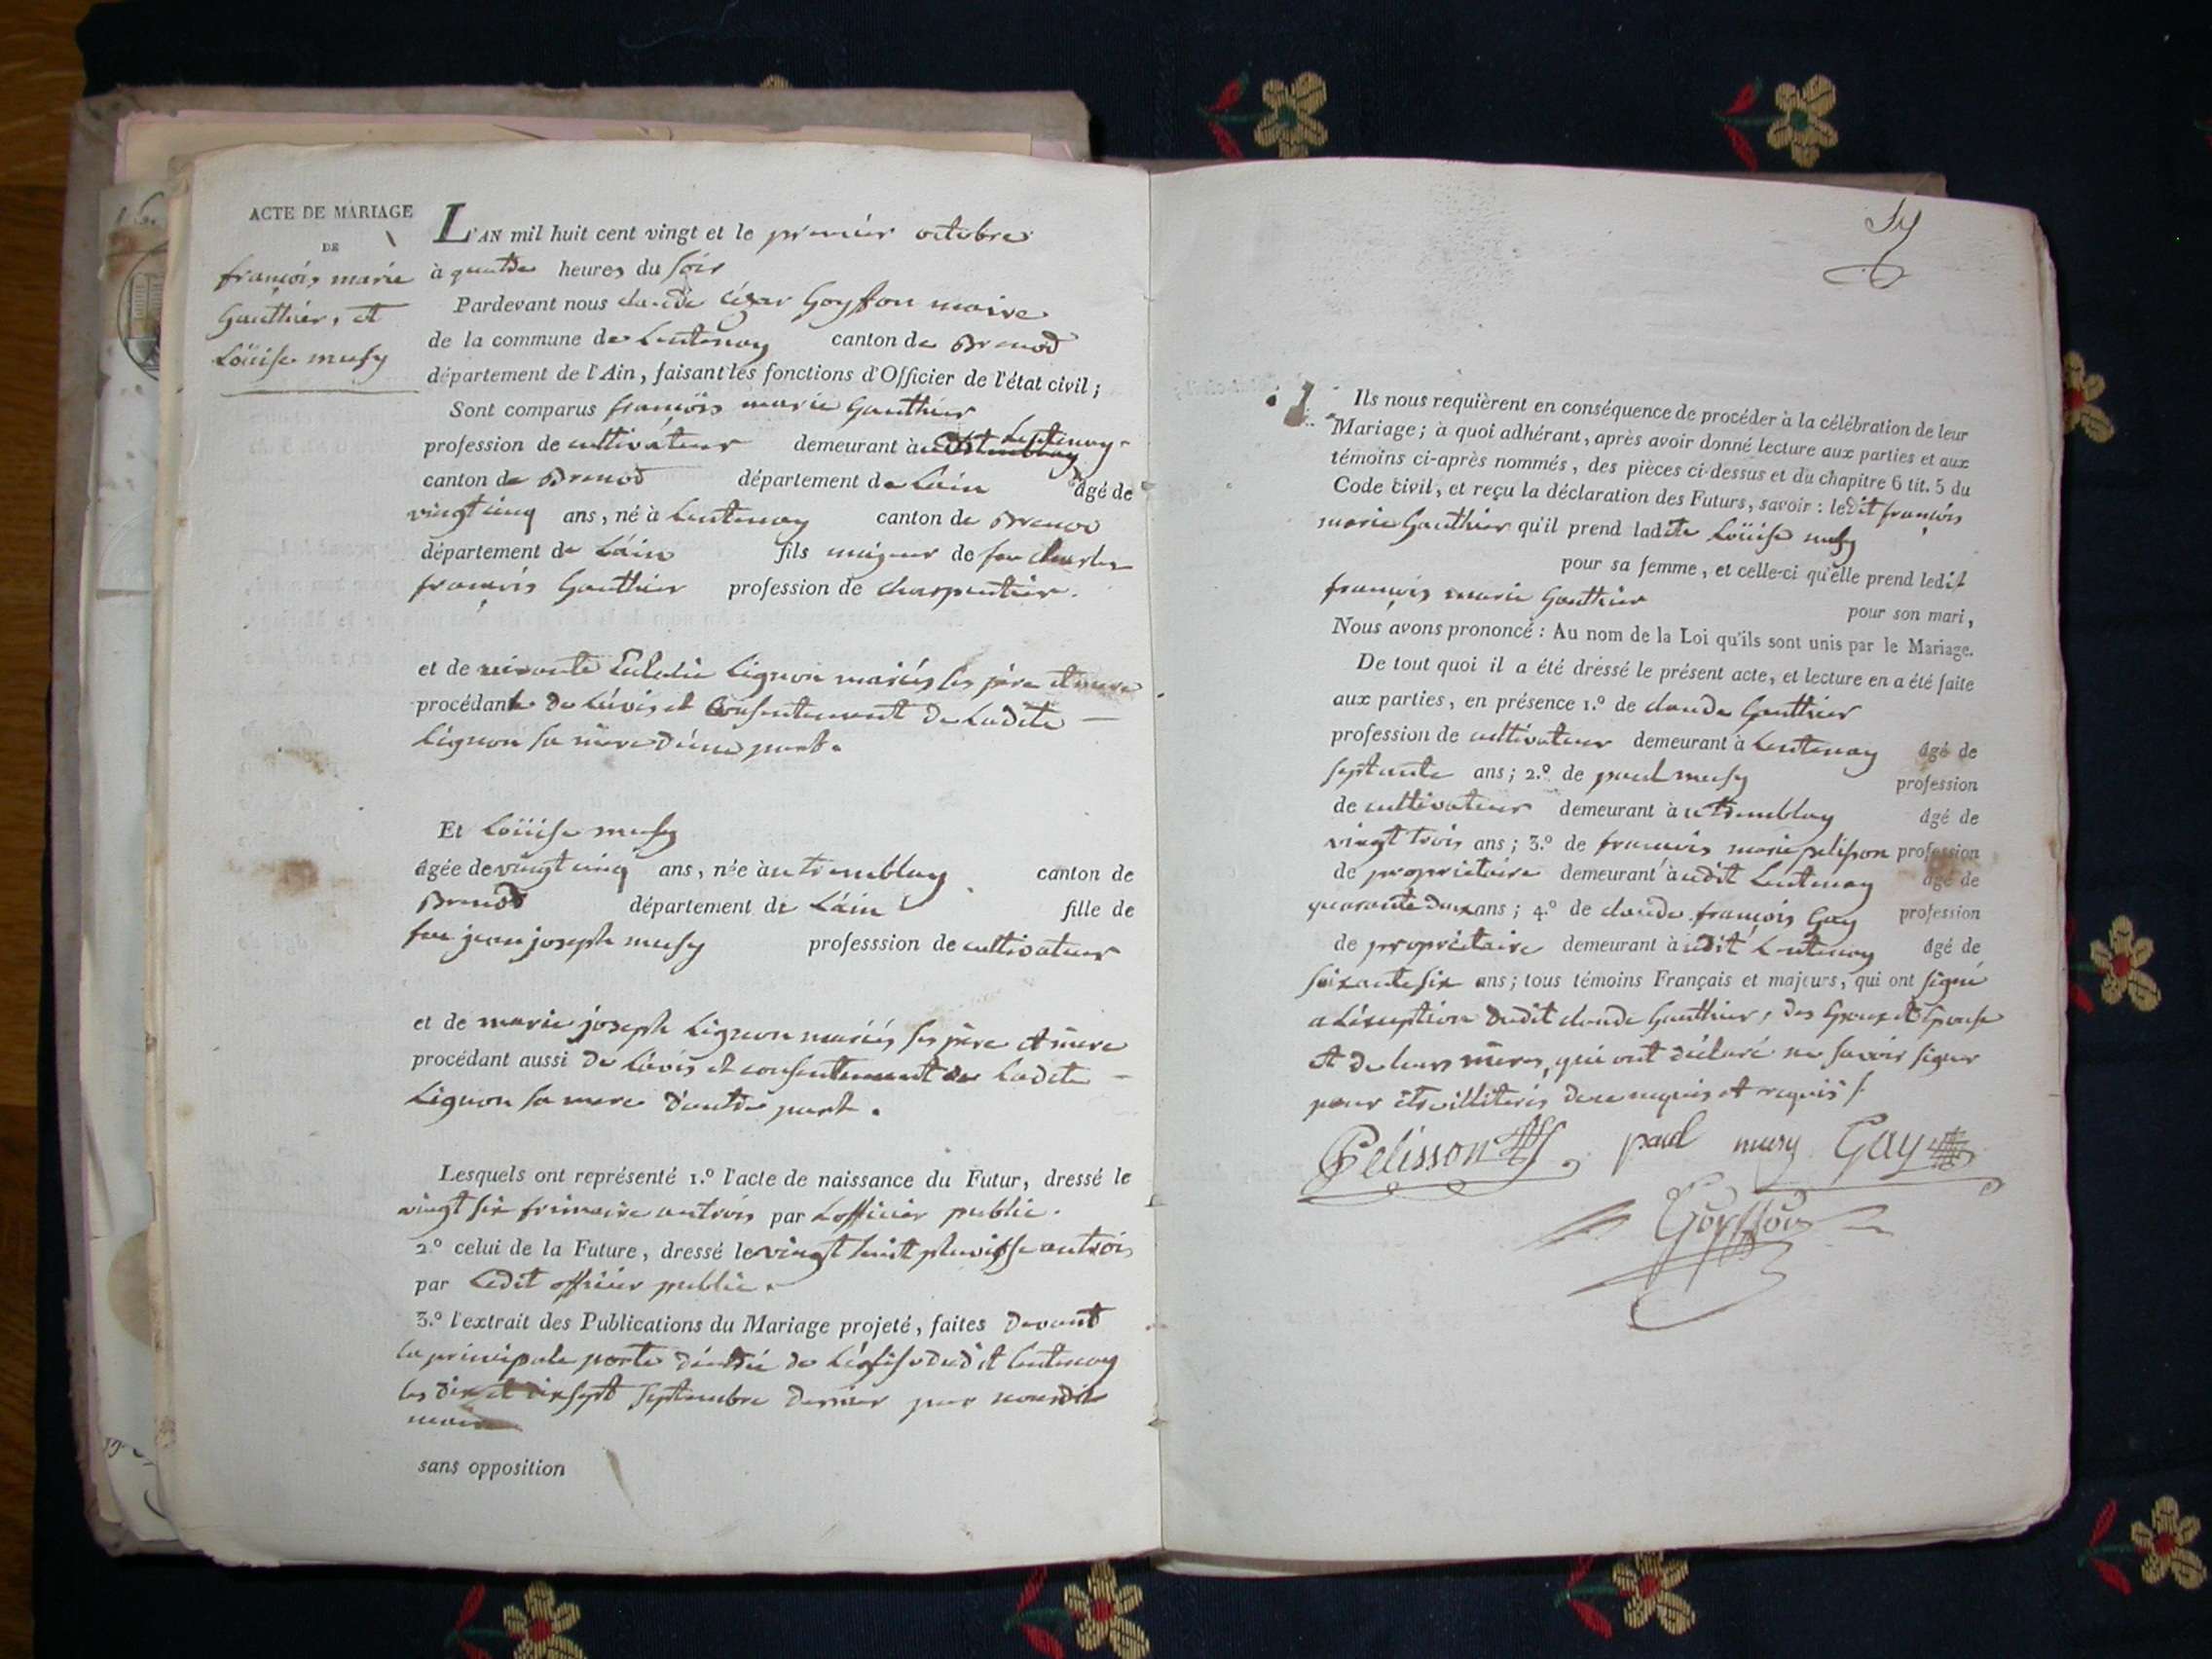 ACTE DE MARIAGE
DE
françois marie
Gauthier, et
Loüise musy
L'AN mil huit cent vingt et le premier octobre
à quatre heures du soir
Pardevant nous claude César Goyffon maire
de la commune de Lentenay canton de Brenod
département de l'Ain, faisant les fonctions d'Officier de l'état civil;
Sont comparus françois marie Gauthier
profession de cultivateur demeurant à Lentenay
canton de Brenod département de Lain âgé de
vingt cinq ans, né à Lentenay canton de Brenod
département de Láin fils majeur de feu charles
françois Gauthier profession de charpentier.
et de vivante Lignon mariés ses père et mere
procédant de Lávis et Consentement de Ladite
Lignon sa mère d'une part.
Et Loüise musy
âgée de vingt cinq ans, née àu tremblay canton de
Brenod département de Láin fille de
feu jean joseph musy professsion de cultivateur
et de marie joseph Lignon mariés ses père et mère
procédant aussi de Lávis et consentement de Ladite
Lignon sa mere d'autre part.
Lesquels ont représenté 1.º l'acte de naissance du Futur, dressé le
vingt six frimaire an trois par Lofficier public.
2.º celui de la Future, dressé le vingt huit pluviose an trois
par Ledit officier public.
3.º l'extrait des Publications du Mariage projeté, faites devant
la principale porte d'entrée de Léglise dudit Lentenay
les dix et dix sept Septembre dernier par nousdit
maire
sans opposition
Ils nous requièrent en conséquence de procéder à la célébration de leur
Mariage; à quoi adhérant, après avoir donné lecture aux parties et aux
témoins ci-après nommés, des pièces ci-dessus et du chapitre 6 tit. 5 du
Code civil, et reçu la déclaration des Futurs, savoir: ledit françois
marie Gauthier qu'il prend ladite Loüise musy
pour sa femme, et celle-ci qu'elle prend ledit
françois marie Gauthier pour son mari,
Nous avons prononcé: Au nom de la Loi qu'ils sont unis par le Mariage.
De tout quoi il a été dressé le présent acte, et lecture en a été faite
aux parties, en présence 1.º de claude Gauthier
profession de cultivateur demeurant à Lentenay âgé de
septante ans; 2.º de paul musy profession
de cultivateur demeurant à u tremblay âgé de
vingt trois ans; 3.º de francois marie pelisson profession
de propriétaire demeurant àudit Lentenay âgé de
quarante deux ans; 4.º de claude françois Gay profession
de propriétaire demeurant àudit Lentenay âgé de
soixante six ans; tous témoins Français et majeurs, qui ont signé
a Léxception dudit claude Gauthier, des Epoux et Epouse
et de leurs mères, qui ont déclaré ne savoir signer
pour être illiterés de ce enquis et requis
Pelisson paul musy Gay
Goyffon